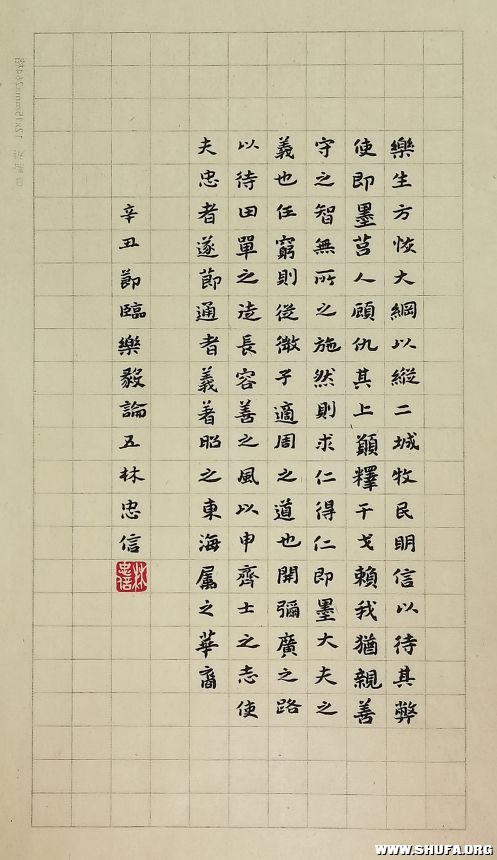 樂生方恢大綱以縱二城牧民明信以待其弊
使即墨莒人顧仇其上願釋干戈賴我猶親善
守之智無所之施然則求仁得仁即墨大夫之
義也任窮則從微子適周之道也開彌廣之路
以待田單之徒長容善之風以申齊士之志使
夫忠者遂節通者義著昭之東海屬之華裔
辛丑節臨樂毅論五林忠信
林忠信
WWW.SHUFA.ORG